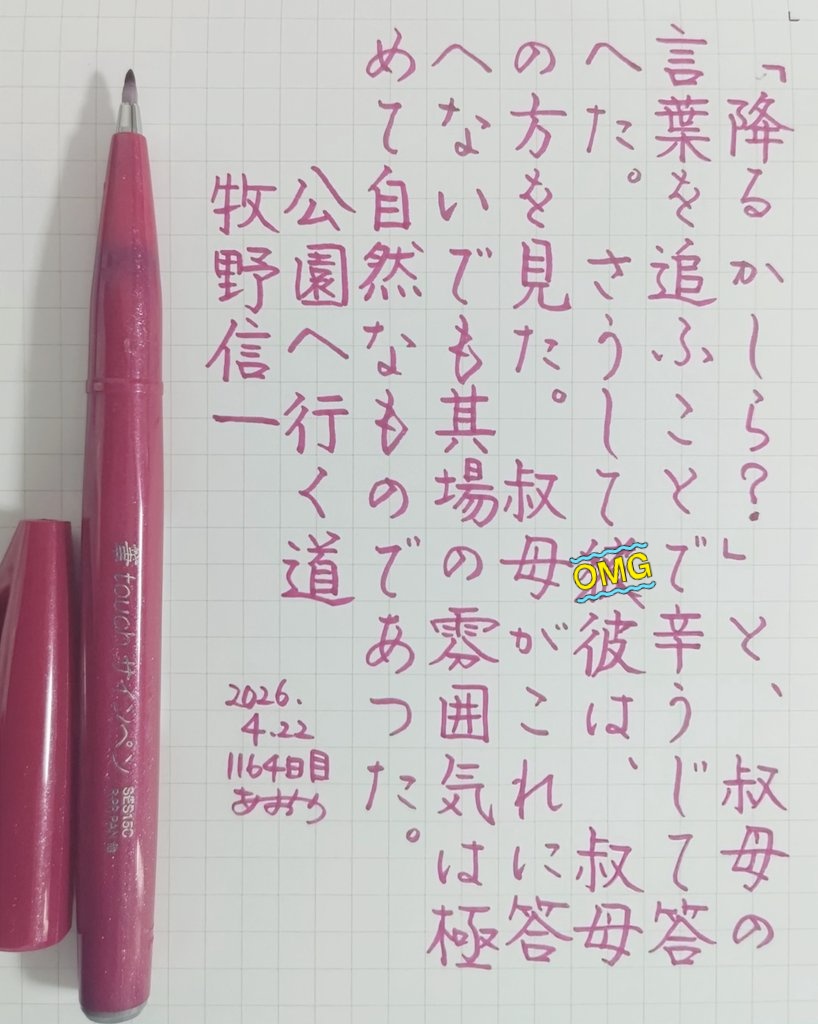 「降るかしら？」と、叔母の
言葉を追ふことで辛うじて答
へた。さうして OMG 彼は、叔母
の方を見た。叔母がこれに答
へないでも其場の雰囲気は極
めて自然なものであつた。
公園へ行く道
牧野信一
2026.
4.22
1164日目
あおおり
筆touchサインペン
SES15C